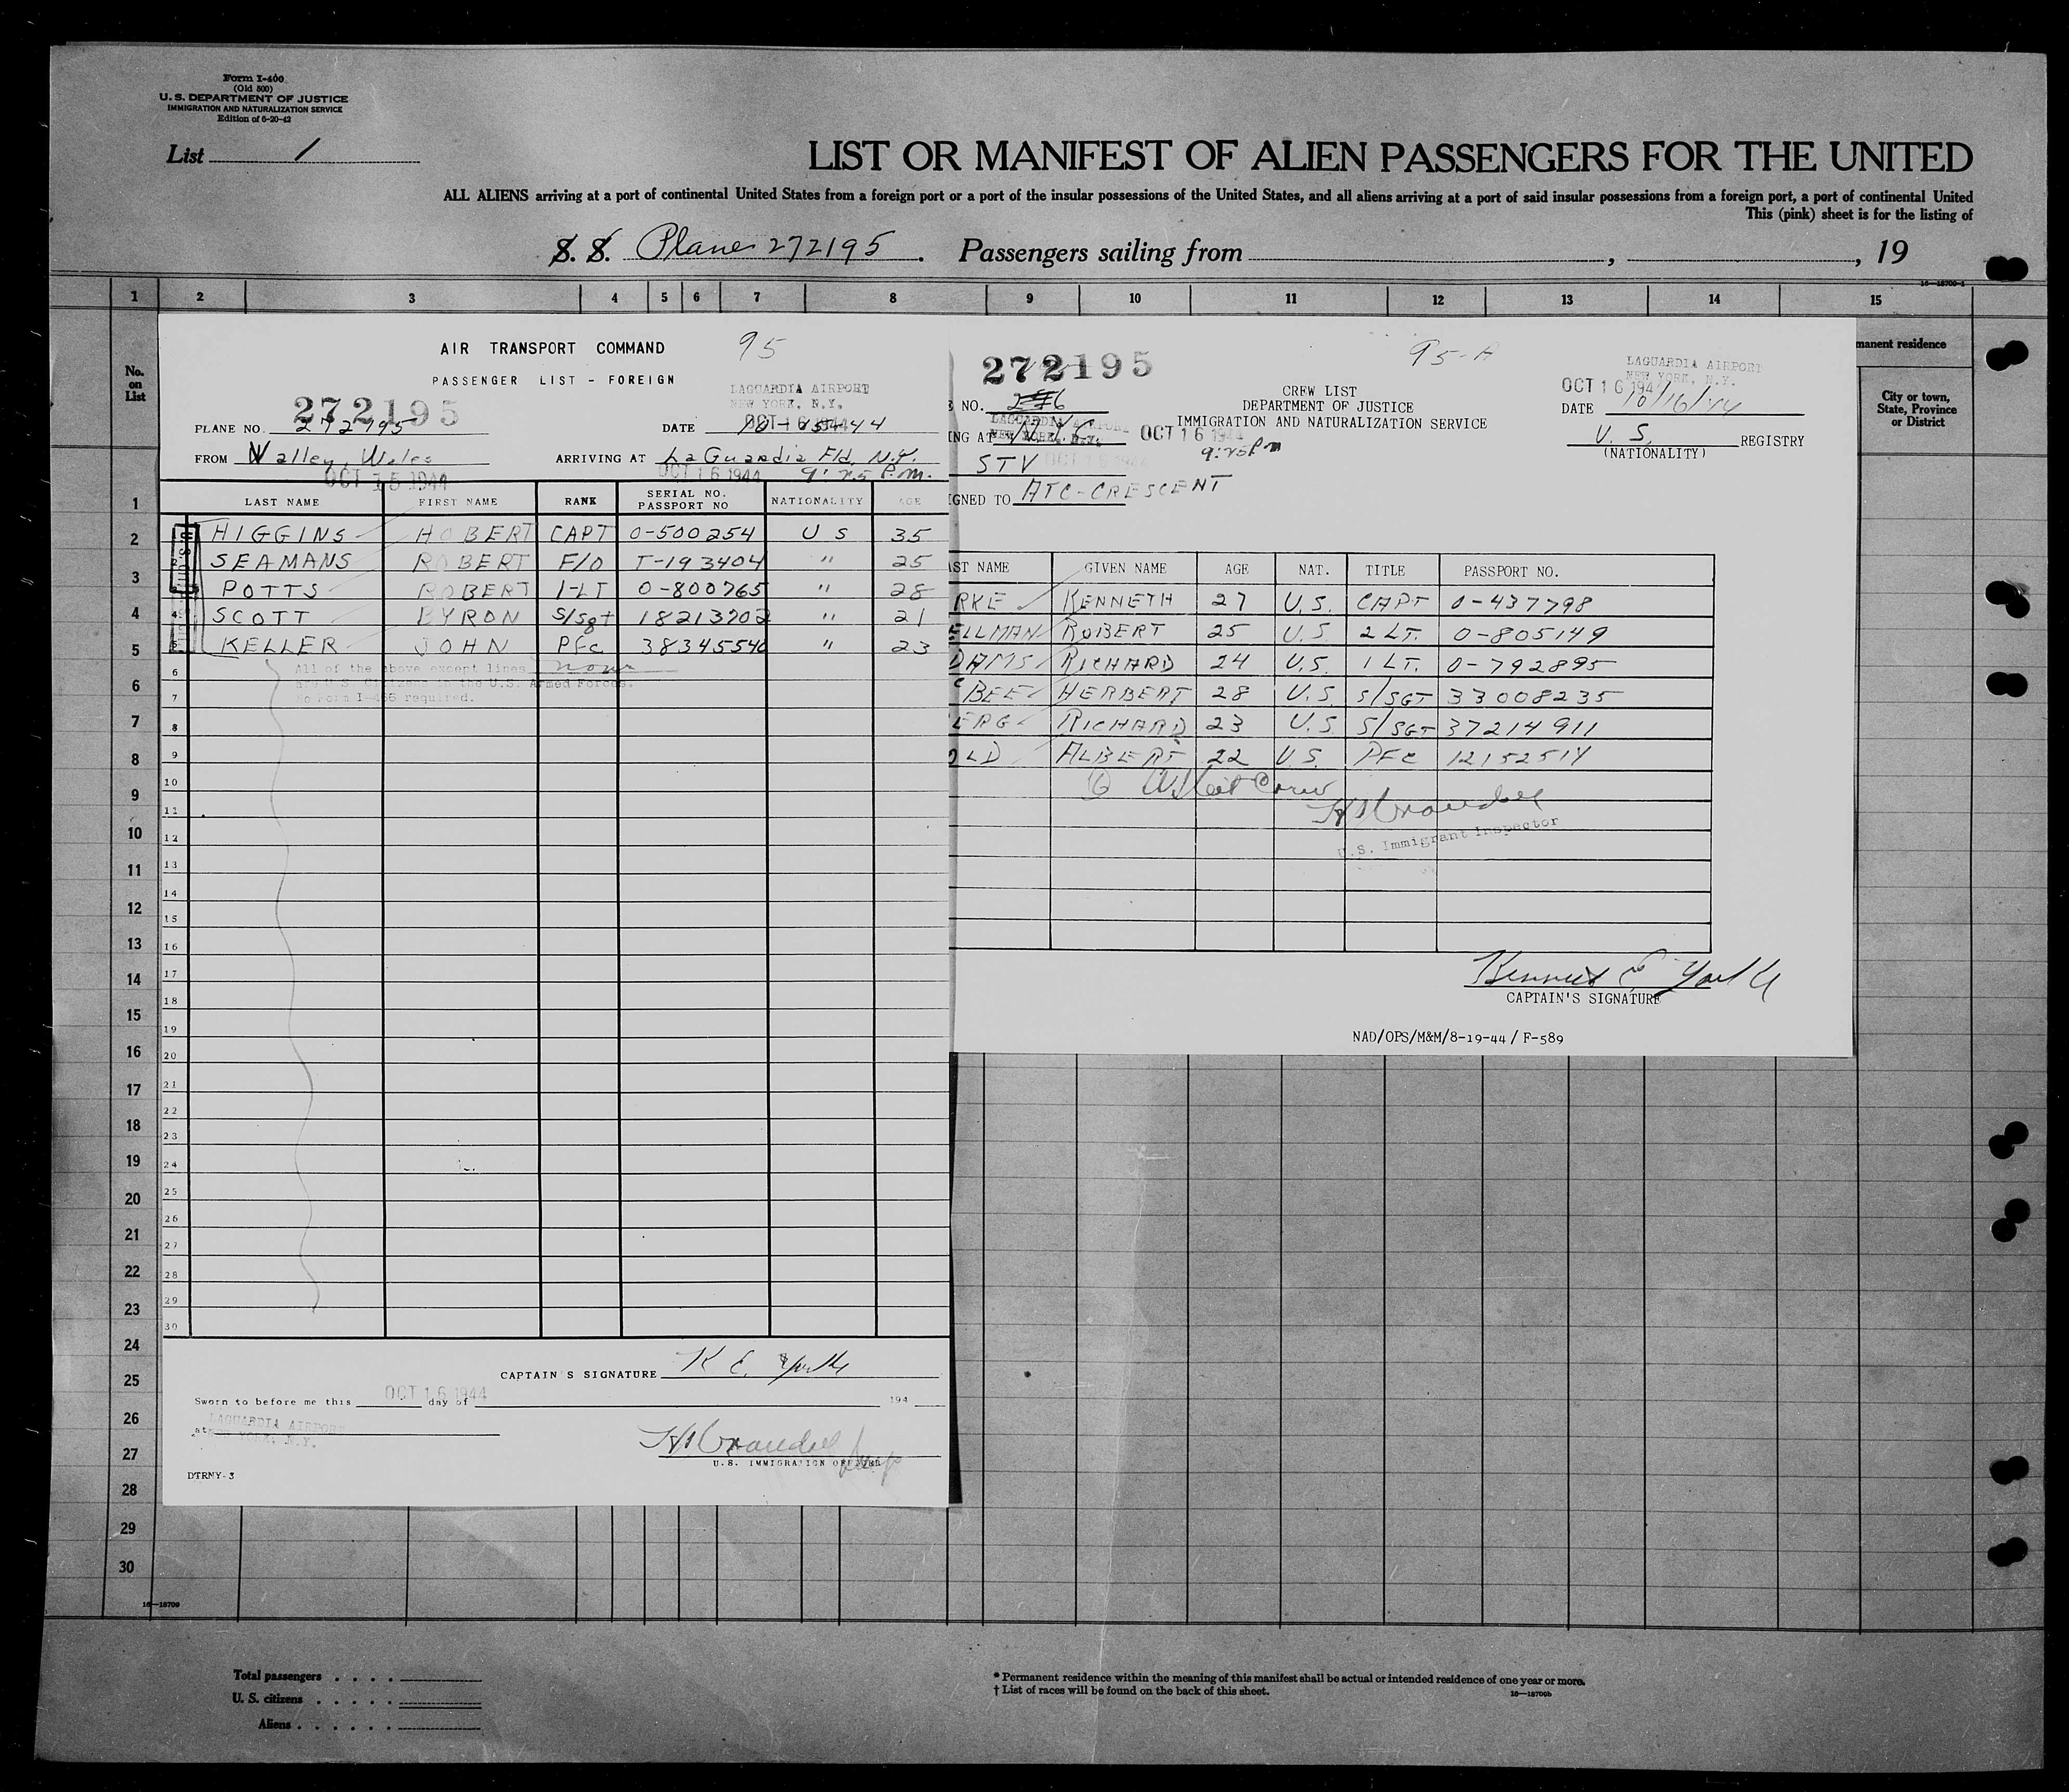 Form I-400
(Old 500)
U. S. DEPARTMENT OF JUSTICE
IMMIGRATION AND NATURALIZATION SERVICE
Edition of 6-20-42
List 1
LIST OR MANIFEST OF ALIEN PASSENGERS FOR THE UNITED
ALL ALIENS arriving at a port of continental United States from a foreign port or a port of the insular possessions of the United States, and all aliens arriving at a port of said insular possessions from a foreign port, a port of continental United
This (pink) sheet is for the listing of
S. S. Plane 272195. Passengers sailing from , , 19
16—18700-1
1 2 3 4 5 6 7 8 9 10 11 12 13 14 15
No. on List
manent residence
City or town, State, Province or District
AIR TRANSPORT COMMAND 95
PASSENGER LIST - FOREIGN
LAGUARDIA AIRPORT
NEW YORK, N.Y.
272195
OCT 16 1944
PLANE NO. 272195 DATE 10-15-44
FROM Valley, Wales ARRIVING AT La Guardia Fld. N.Y.
OCT 15 1944 OCT 16 1944 9:25 P.M.
LAST NAME FIRST NAME RANK SERIAL NO. PASSPORT NO NATIONALITY AGE
HIGGINS HOBERT CAPT O-500254 U S 35
SEAMANS ROBERT F/O T-193404 " 25
POTTS ROBERT 1-LT O-800765 " 28
SCOTT BYRON S/Sgt 18213702 " 21
KELLER JOHN PFc 38345546 " 23
All of the above except lines none
are U.S. Citizens in the U.S. Armed Forces.
No Form I-466 required.
6
7
8
9
10
11
12
13
14
15
16
17
18
19
20
21
22
23
24
25
26
27
28
29
30
CAPTAIN'S SIGNATURE K E. Yorke
Sworn to before me this OCT 16 1944 day of 194
at LAGUARDIA AIRPORT
NEW YORK, N.Y.
U.S. IMMIGRATION OFFICER
DTRNY-3
95-A
272195
LAGUARDIA AIRPORT
NEW YORK, N.Y.
OCT 16 1944
CREW LIST
NO.
DEPARTMENT OF JUSTICE
DATE 10/16/44
IMMIGRATION AND NATURALIZATION SERVICE
NG AT
LAGUARDIA AIRPORT
NEW YORK, N.Y.
OCT 16 1944
9:25 PM
U. S. REGISTRY
(NATIONALITY)
STV OCT 16 1944
GNED TO ATC-CRESCENT
ST NAME GIVEN NAME AGE NAT. TITLE PASSPORT NO.
RKE KENNETH 27 U.S. CAPT O-437798
ELLMAN ROBERT 25 U.S. 2 LT. O-805149
DAMS RICHARD 24 U.S. 1 LT. O-792895
BEE HERBERT 28 U.S. S/SGT 33008235
ERG RICHARD 23 U.S. S/SGT 37214911
OLD ALBERT 22 U.S. PFC 12152514
U.S. Immigrant Inspector
Kenneth E Yorke
CAPTAIN'S SIGNATURE
NAD/OPS/M&M/8-19-44 / F-589
1
2
3
4
5
6
7
8
9
10
11
12
13
14
15
16
17
18
19
20
21
22
23
24
25
26
27
28
29
30
16—18700
Total passengers . . . .
U. S. citizens . . . . .
Aliens . . . . . .
* Permanent residence within the meaning of this manifest shall be actual or intended residence of one year or more.
† List of races will be found on the back of this sheet.
16—18700b